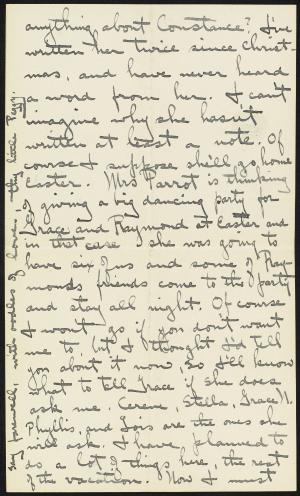 anything about Constance? I've
written her twice since Christ-
mas, and have never heard
a word from her. I can't
imagine why she hasn't
written at least a note. Of
course I suppose she'll go home
Easter. Mrs Parrot is thinking
of giving a big dancing party for
Grace and Raymond at Easter and
in that case she was going to
have six of us and some of Ray-
mond's friends come to the party
and stay all night. Of course
I won't go if you don't want
me to but I thought I'd tell
you about it now, so I'll know
what to tell Grace if she does
ask me. Stella, Grace N.
Phyllis, and Lois are the ones she
will ask. I have planned to
do a lot of things here, the rest
of the vacation. Now I must
say farewell, with oodles of love, thy little Peggy.